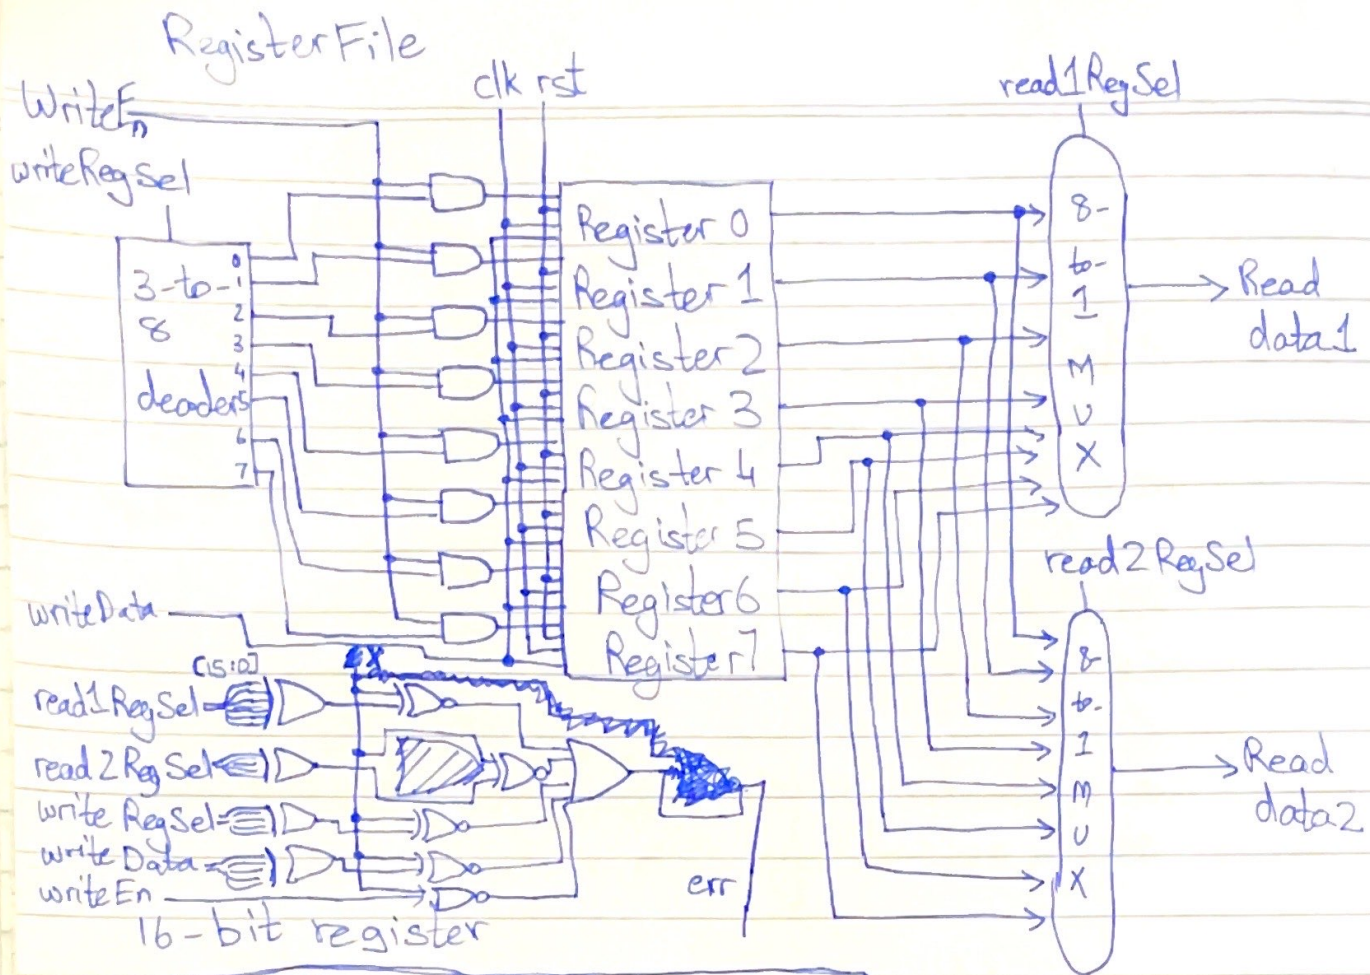 RegisterFile
clk rst
read1RegSel
WriteEn
writeRegSel
3-to-
8
deader
0
1
2
3
4
5
6
7
Register 0
Register 1
Register 2
Register 3
Register 4
Register 5
Register 6
Register 7
8-
to-
1
M
U
X
Read
data1
read2RegSel
8-
to-
1
M
U
X
Read
data2
writeData
[15:0]
X
read1RegSel
read2RegSel
write RegSel
write Data
writeEn
err
16-bit register